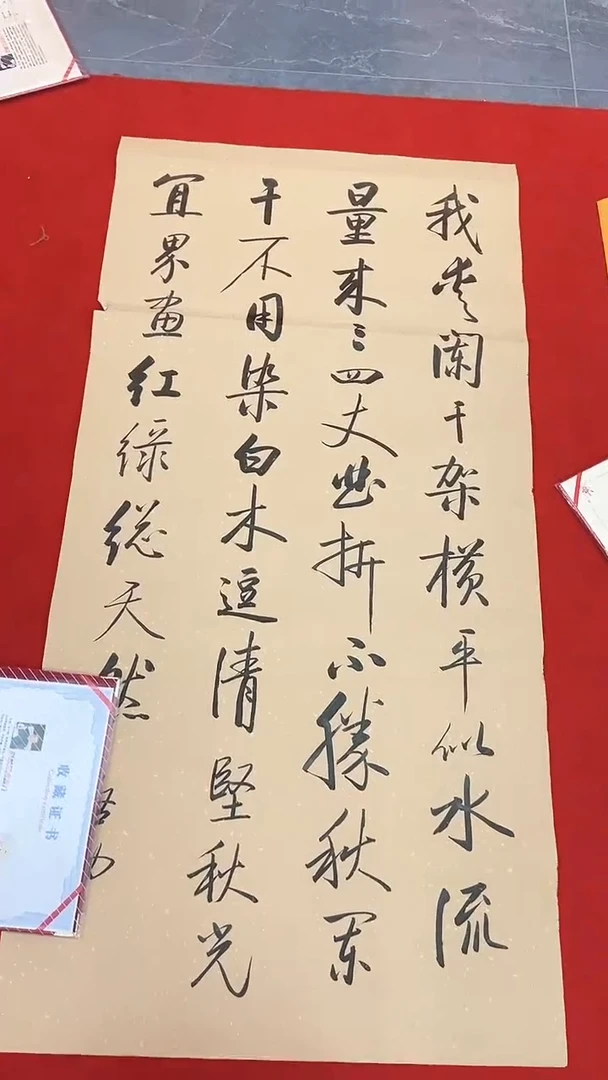 我爱阑干架横平似水流
量来三四丈曲折不胜秋阑
干不用染白木逗清坚秋光
宜界画红绿总天然
收藏证书